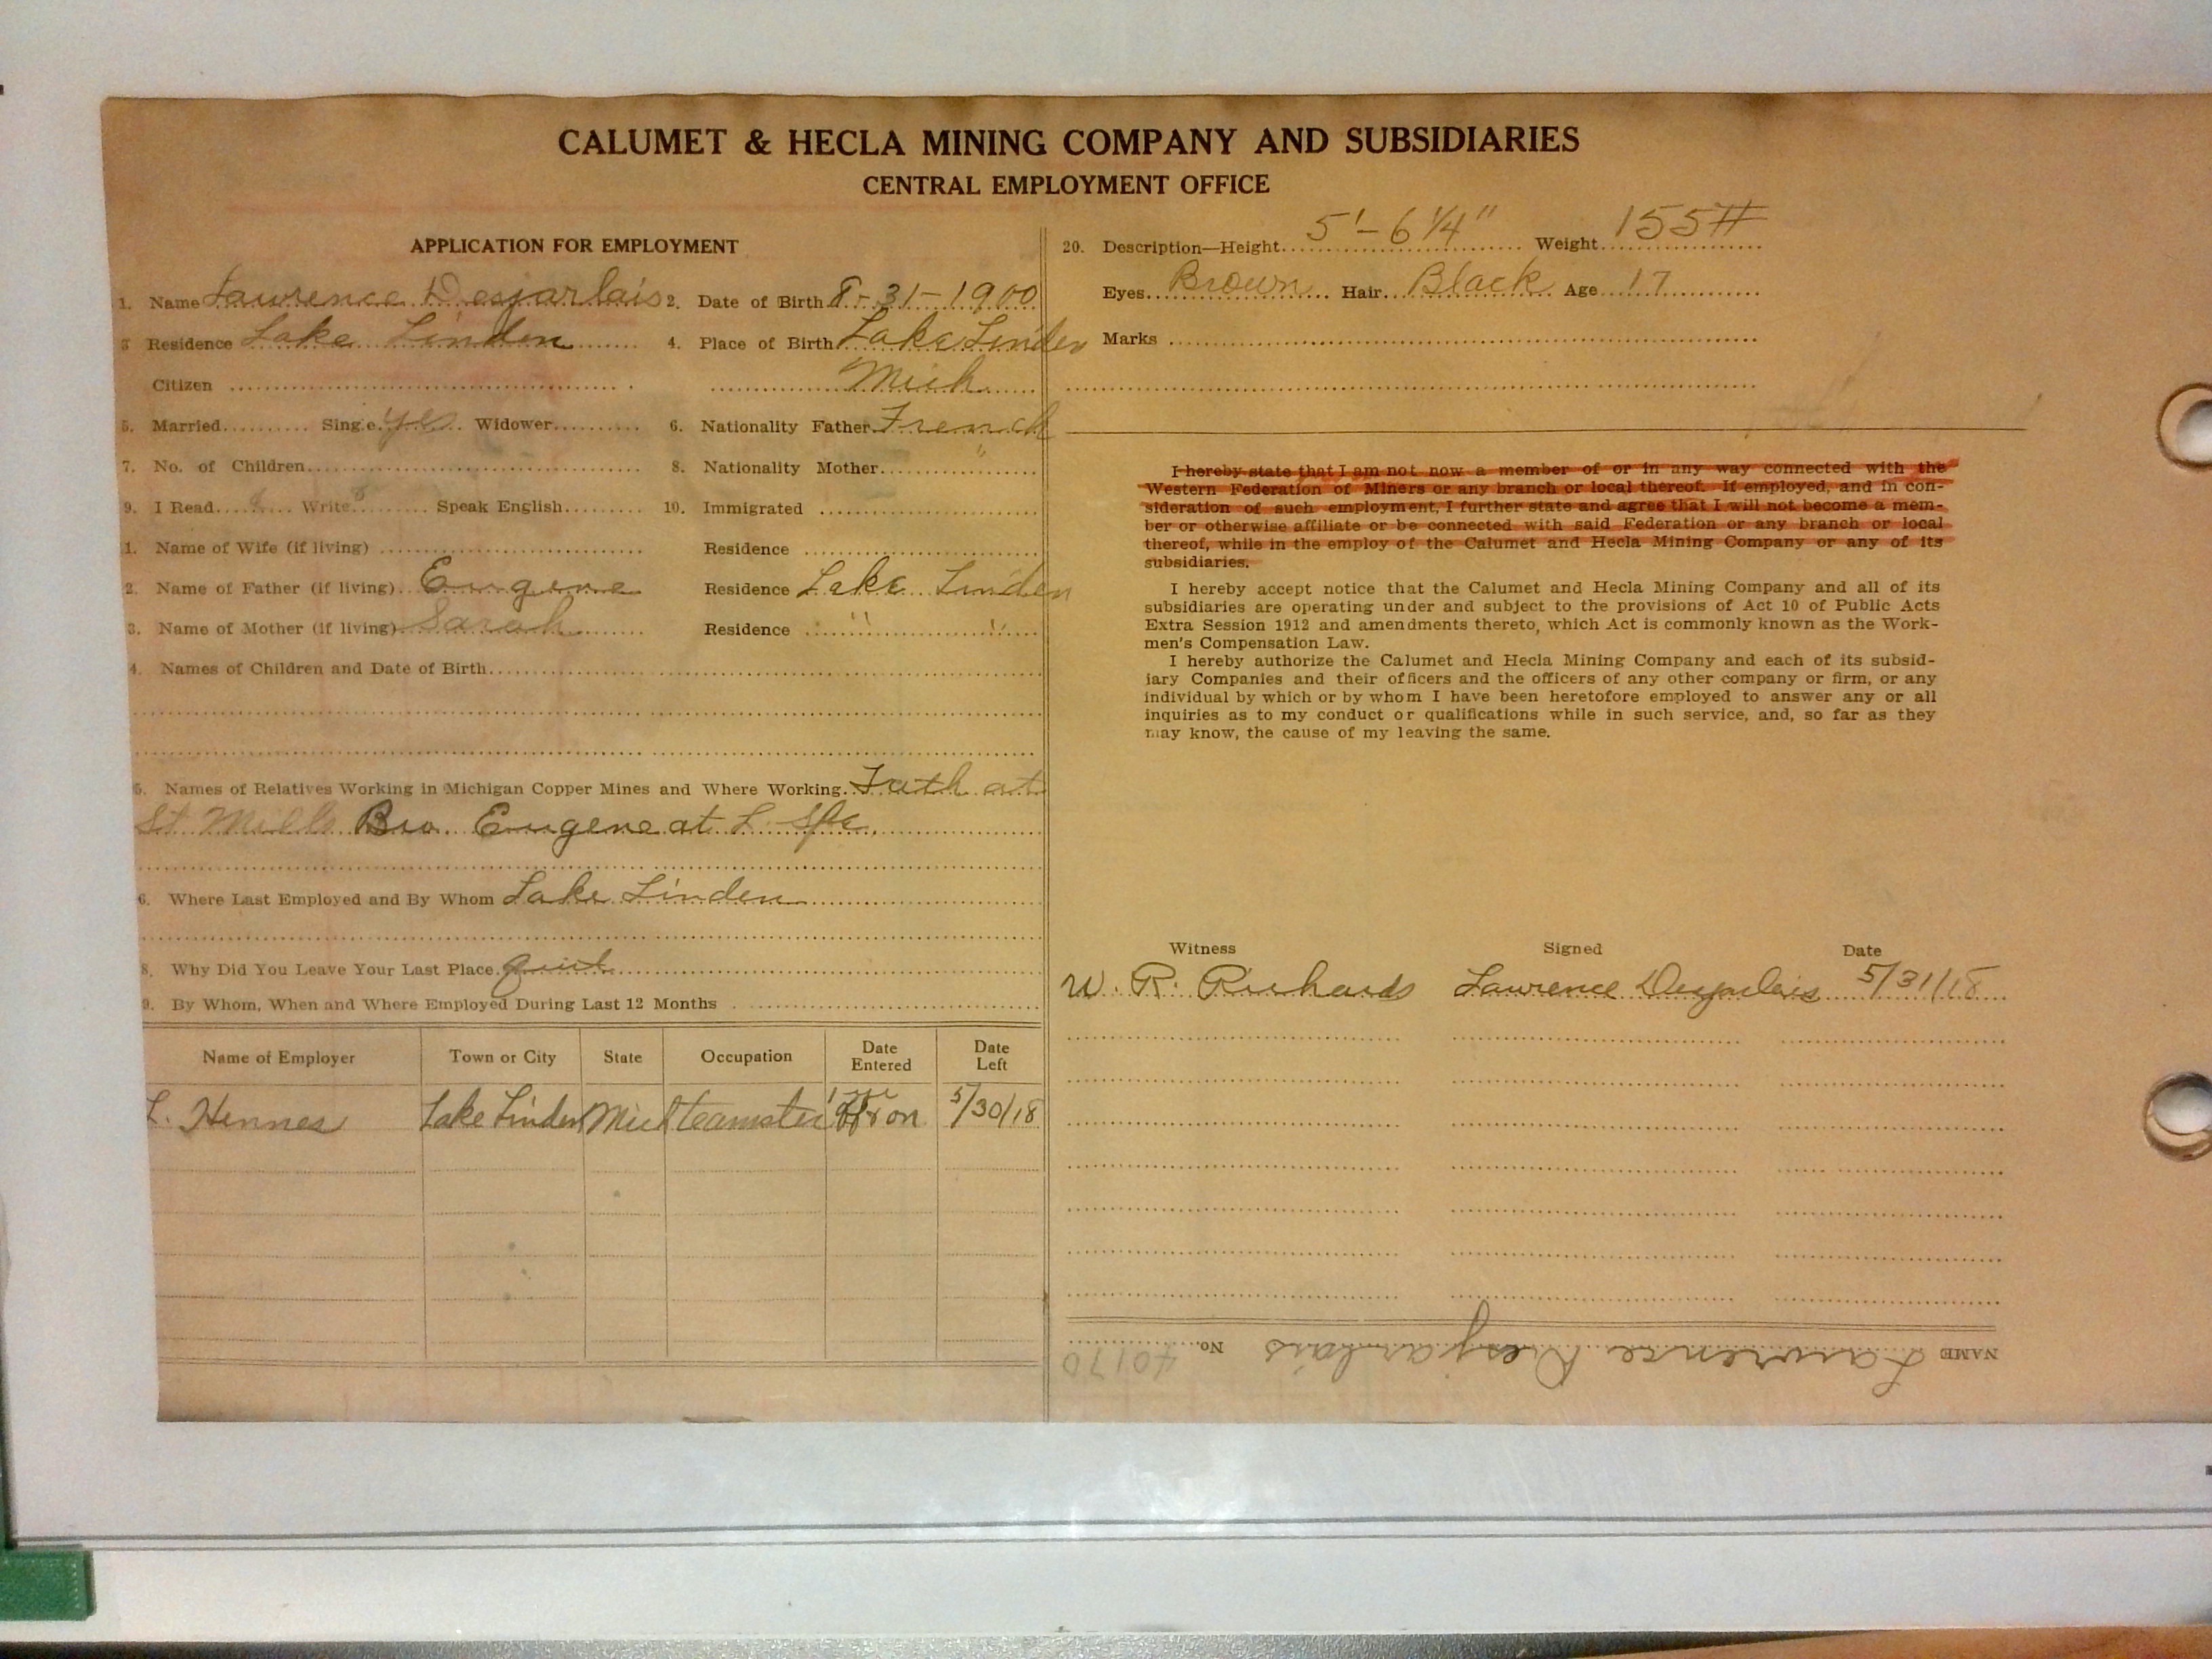 CALUMET & HECLA MINING COMPANY AND SUBSIDIARIES
CENTRAL EMPLOYMENT OFFICE
APPLICATION FOR EMPLOYMENT
1. Name Lawrence Desjarlais 2. Date of Birth 8-31-1900
3 Residence Lake Linden 4. Place of Birth Lake Linden
Citizen Mich
5. Married Single yes Widower 6. Nationality Father French
7. No. of Children 8. Nationality Mother "
9. I Read Write Speak English 10. Immigrated
1. Name of Wife (if living) Residence
2. Name of Father (if living) Eugene Residence Lake Linden
3. Name of Mother (if living) Sarah Residence " "
4. Names of Children and Date of Birth
5. Names of Relatives Working in Michigan Copper Mines and Where Working. Fath at
St Mills Bro. Eugene at L. Spe.
6. Where Last Employed and By Whom Lake Linden
8. Why Did You Leave Your Last Place. quit
9. By Whom, When and Where Employed During Last 12 Months
Name of Employer Town or City State Occupation Date Entered Date Left
L. Hennes Lake Linden Mich teamster off & on 5/30/18
20. Description—Height 5'-6 1/4" Weight 155#
Eyes Brown Hair Black Age 17
Marks
I hereby state that I am not now a member of or in any way connected with the
Western Federation of Miners or any branch or local thereof. If employed, and in con-
sideration of such employment, I further state and agree that I will not become a mem-
ber or otherwise affiliate or be connected with said Federation or any branch or local
thereof, while in the employ of the Calumet and Hecla Mining Company or any of its
subsidiaries.
I hereby accept notice that the Calumet and Hecla Mining Company and all of its
subsidiaries are operating under and subject to the provisions of Act 10 of Public Acts
Extra Session 1912 and amendments thereto, which Act is commonly known as the Work-
men's Compensation Law.
I hereby authorize the Calumet and Hecla Mining Company and each of its subsid-
iary Companies and their officers and the officers of any other company or firm, or any
individual by which or by whom I have been heretofore employed to answer any or all
inquiries as to my conduct or qualifications while in such service, and, so far as they
may know, the cause of my leaving the same.
Witness Signed Date
W. R. Richards Lawrence Desjarlais 5/31/18
NAME Lawrence Desjarlais No. 40170